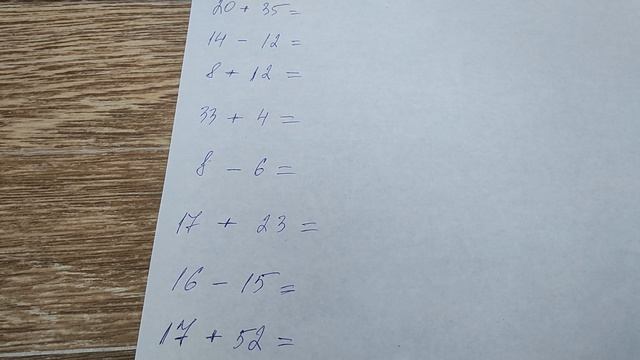 20 + 35 =
14 - 12 =
8 + 12 =
33 + 4 =
8 - 6 =
17 + 23 =
16 - 15 =
17 + 52 =